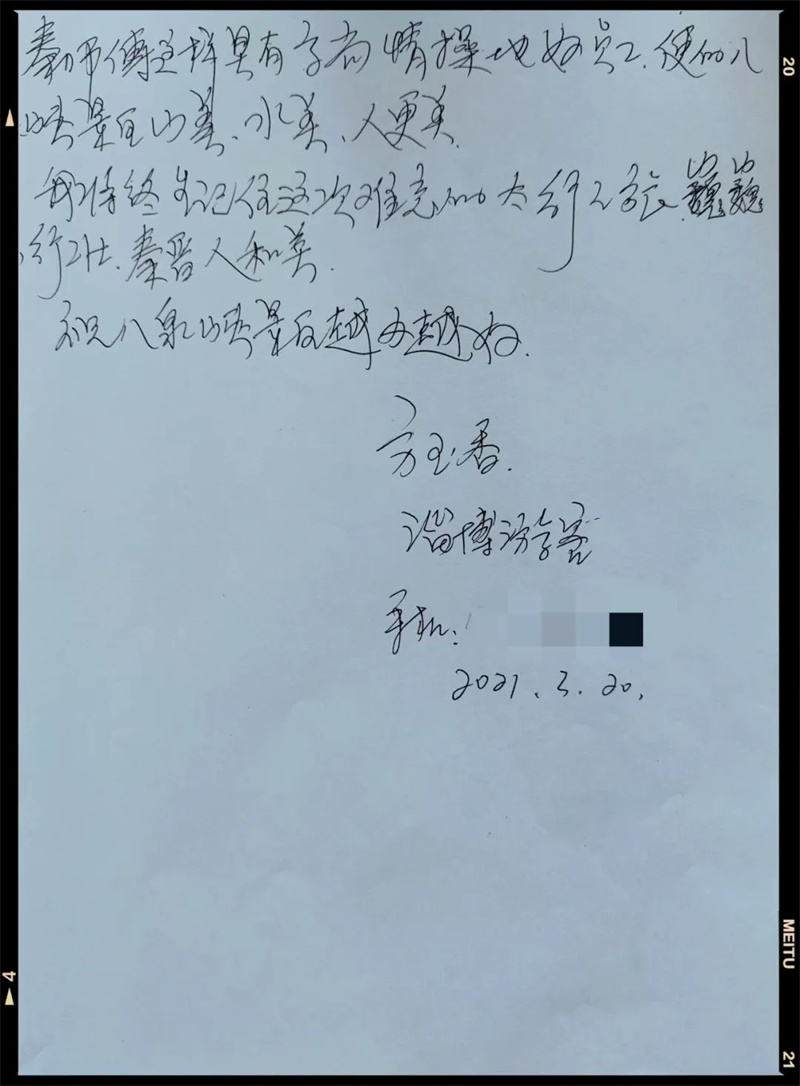 秦师傅这样具有高尚情操地好员工.使的八
峡景区山美、水美、人更美.
我将终生记住这次难忘的太行之旅.巍巍
行壮.秦晋人和美.
祝八泉峡景区越办越好.
方玉香.
淄博游客
手机:
2021.3.20.
20
MEITU
21
4